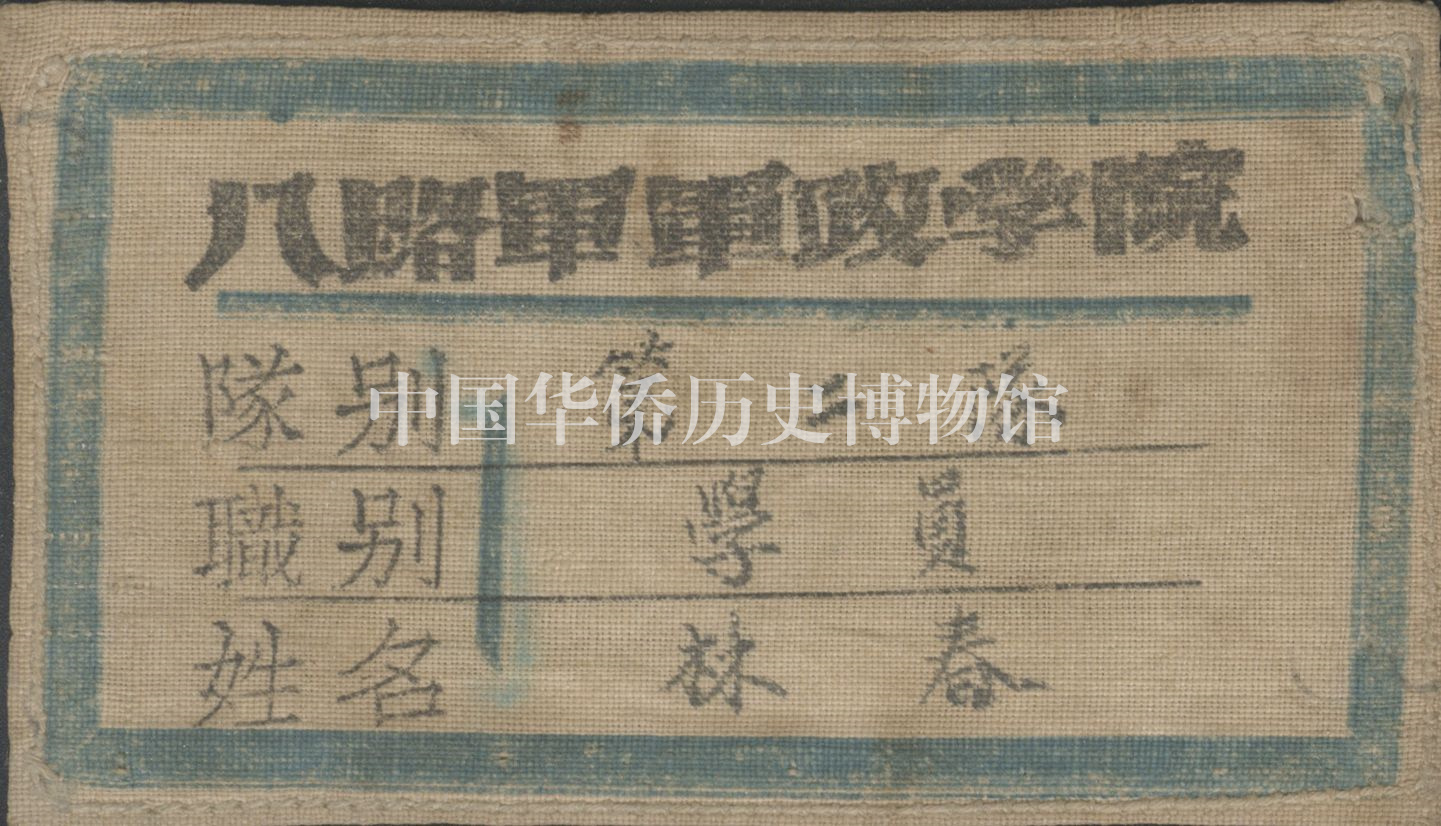 八路軍軍政学院
隊别 第二隊
中国华侨历史博物馆
職别 學員
姓名 林春